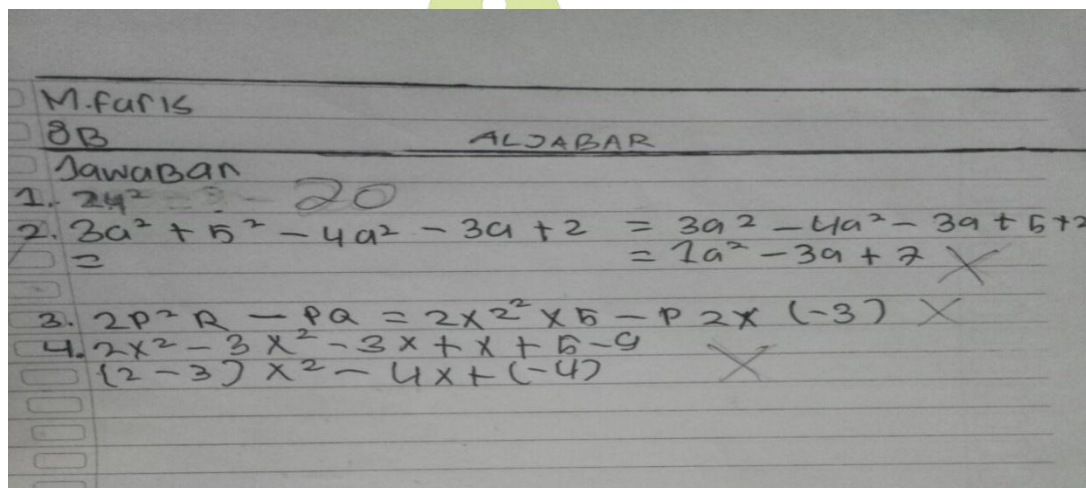 M.faris
8B
ALJABAR
Jawaban
1. 2y² 20
2. 3a² + 5² - 4a² - 3a + 2 = 3a² - 4a² - 3a + 5 + 2
= = 1a² - 3a + 7 X
3. 2P²R - PQ = 2x2² x 5 - P 2x (-3) X
4. 2x² - 3x² - 3x + x + 5 - 9
(2 - 3) x² - 4x + (-4) X